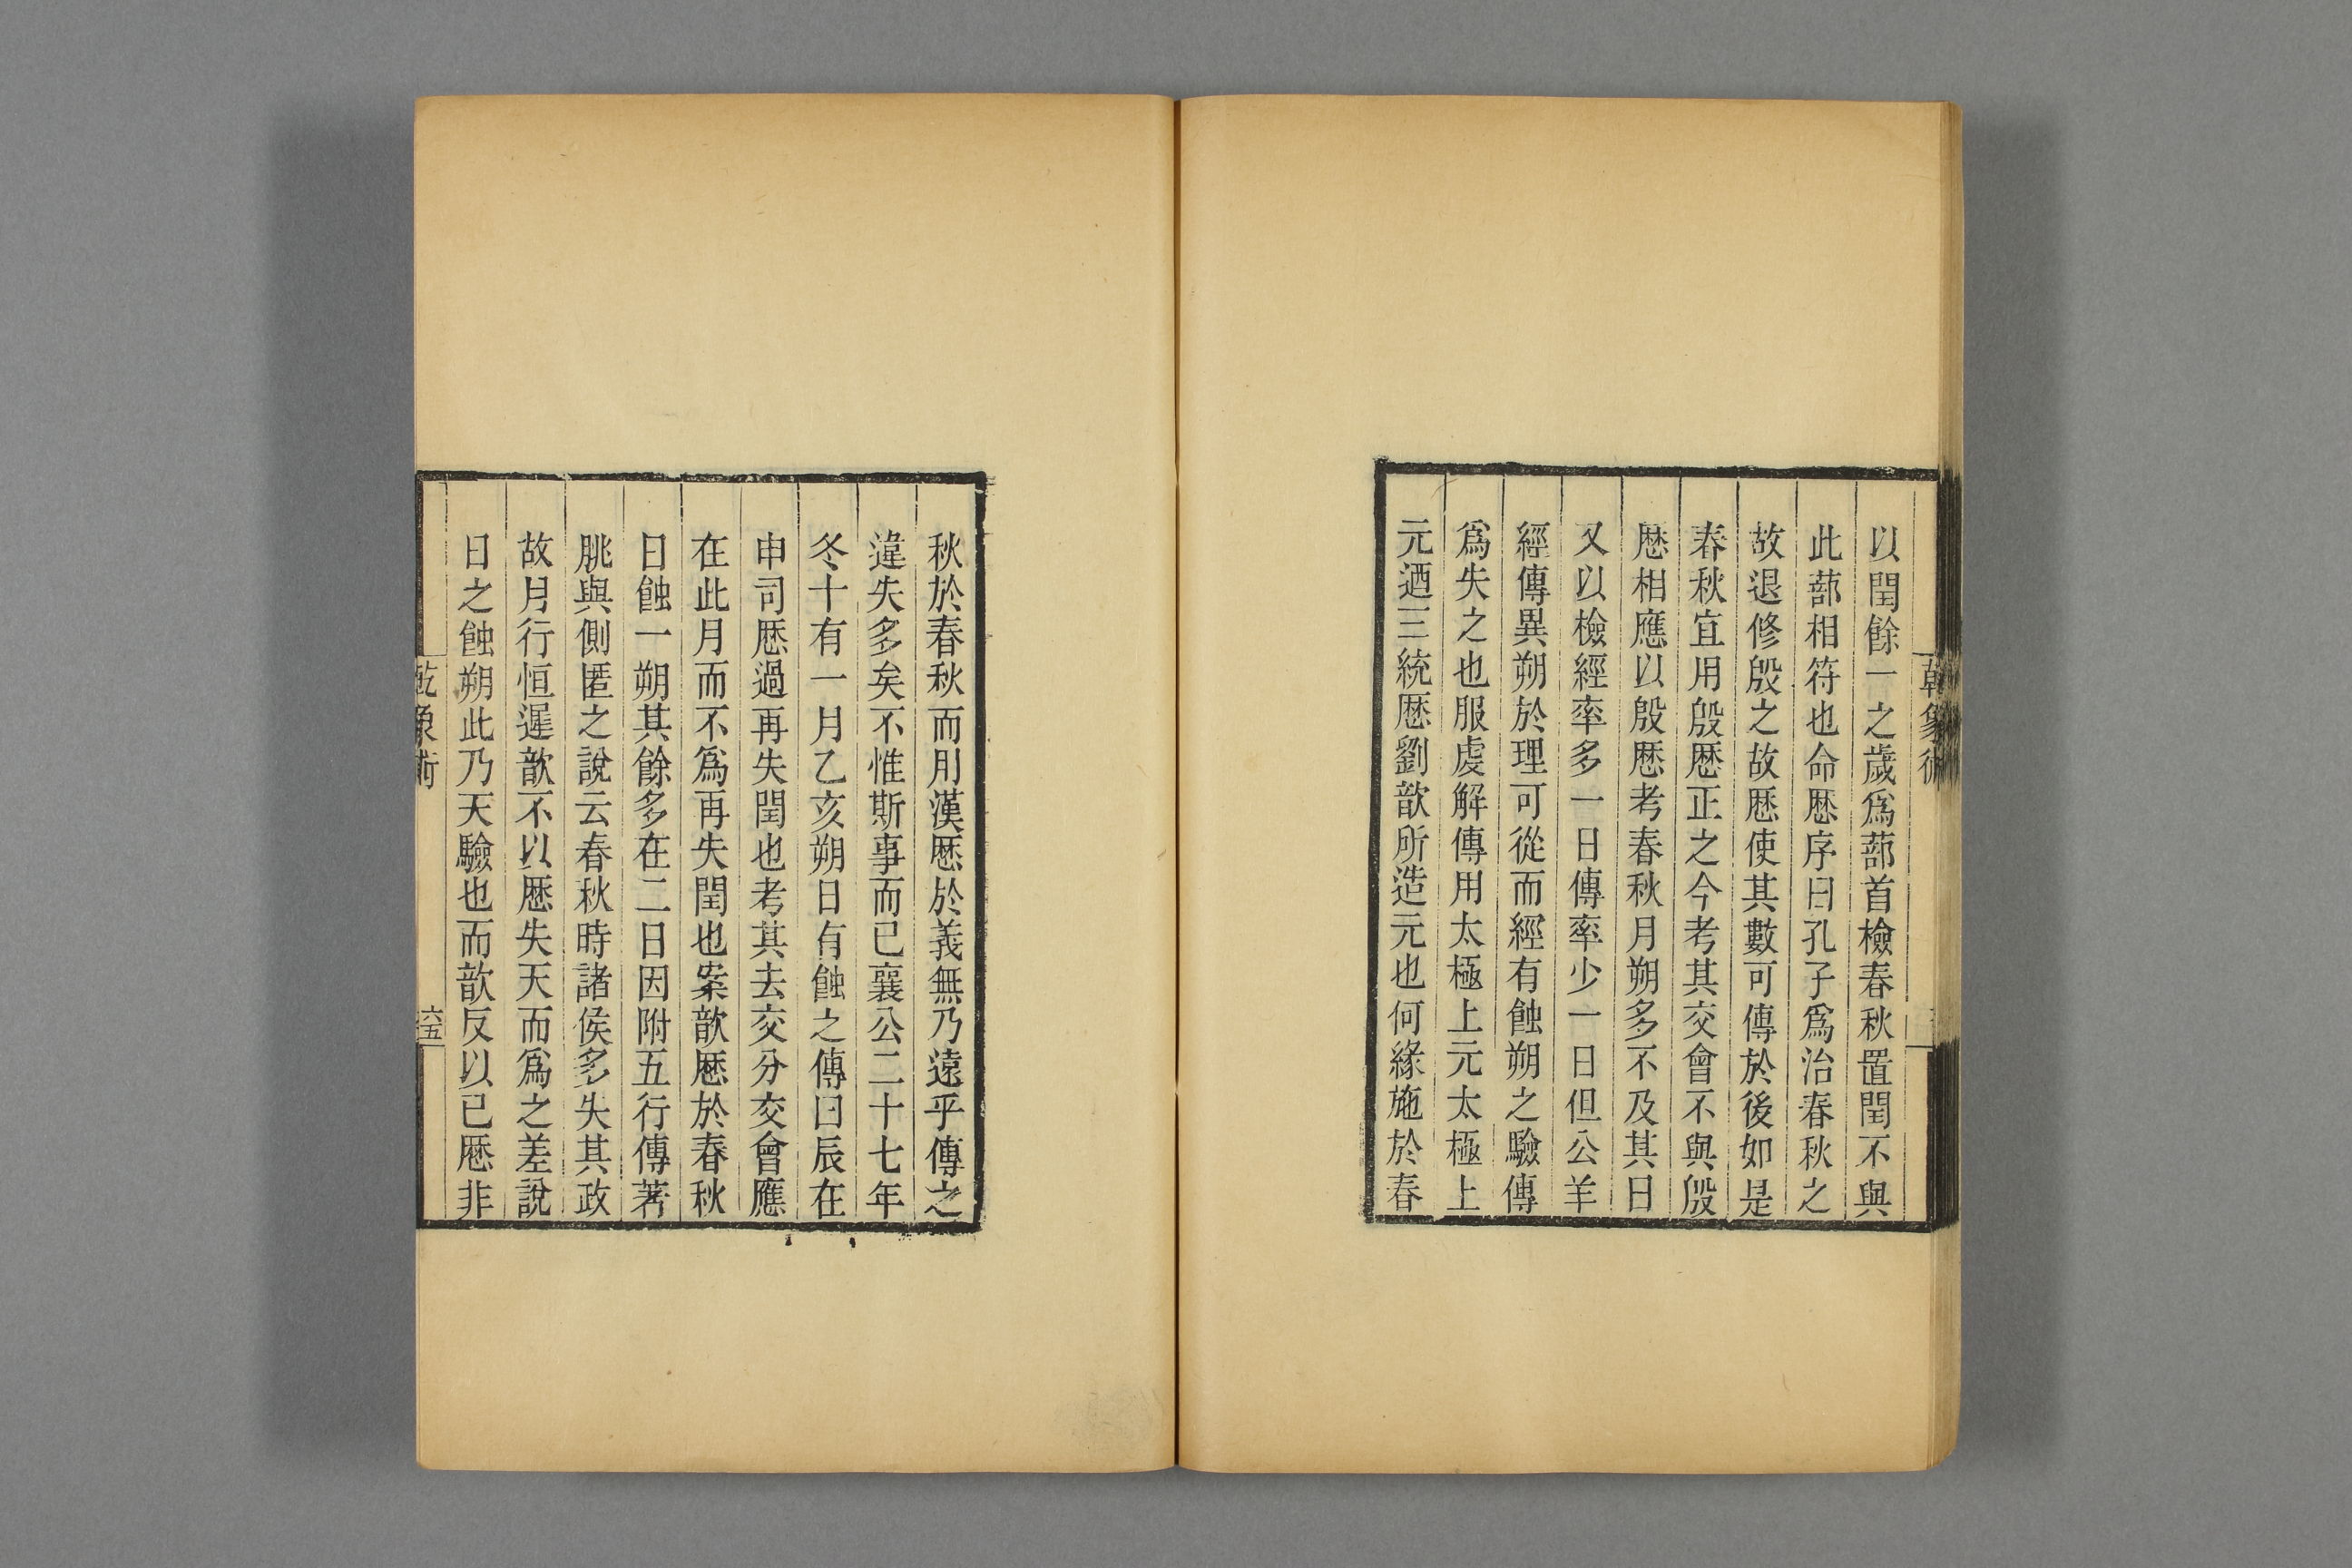 以閏餘一之歲爲蔀首檢春秋置閏不與
此蔀相符也命厯序曰孔子爲治春秋之
故退修殷之故厯使其數可傳於後如是
春秋宜用殷厯正之今考其交會不與殷
厯相應以殷厯考春秋月朔多不及其日
又以檢經率多一日傳率少一日但公羊
經傳異朔於理可從而經有蝕朔之驗傳
爲失之也服虔解傳用太極上元太極上
元迺三統厯劉歆所造元也何緣施於春
乾象術
秋於春秋而用漢厯於義無乃遠乎傳之
違失多矣不惟斯事而已襄公二十七年
冬十有一月乙亥朔日有蝕之傳曰辰在
申司厯過再失閏也考其去交分交會應
在此月而不爲再失閏也案歆厯於春秋
日蝕一朔其餘多在二日因附五行傳著
朓與側匿之說云春秋時諸侯多失其政
故月行恒遲歆不以厯失天而爲之差說
日之蝕朔此乃天驗也而歆反以已厯非
乾象術